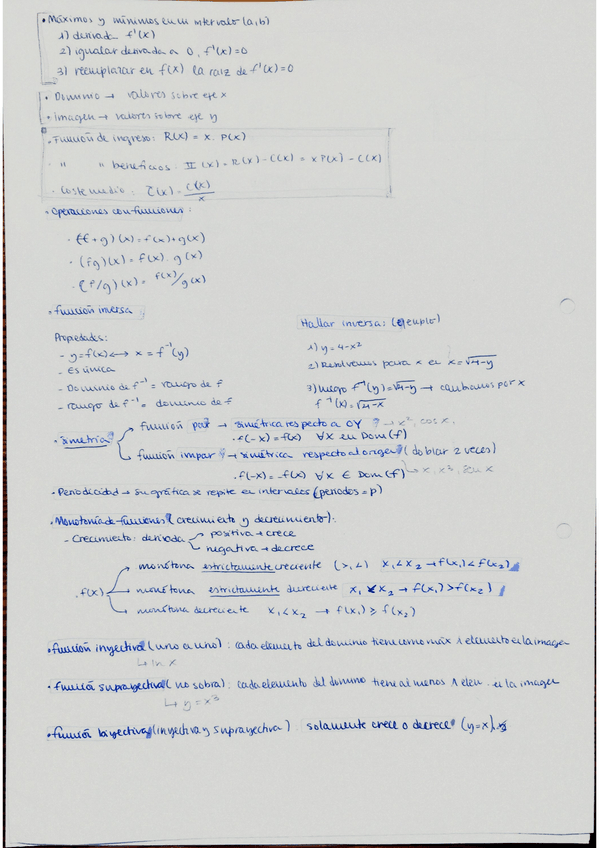 • Máximos y mínimos en un intervalo (a,b)
1) derivada f'(x)
2) igualar derivada a 0, f'(x)=0
3) reemplazar en f(x) la raiz de f'(x)=0
• Dominio → valores sobre eje x
• Imagen → valores sobre eje y
• Función de ingreso: R(x) = x. p(x)
" " beneficios: Π(x) = R(x) - C(x) = x P(x) - C(x)
• Coste medio: C̄(x) = C(x)/x
• Operaciones con funciones:
· (f+g)(x) = f(x)+g(x)
· (fg)(x) = f(x). g(x)
· (f/g)(x) = f(x)/g(x)
• Función inversa
Propiedades:
- y=f(x) ⟷ x = f⁻¹(y)
- Es única
- Dominio de f⁻¹ = rango de f
- rango de f⁻¹ = dominio de f
Hallar inversa: (ejemplo)
1) y = 4-x²
2) Resolvemos para x en x = √4-y
3) luego f⁻¹(y) = √4-y → cambiamos por x
f⁻¹(x) = √4-x
• Simetría
función par → simétrica respecto a OY → x², cos x.
· f(-x) = f(x) ∀x en Dom(f)
función impar → simétrica respecto al origen (doblar 2 veces)
· f(-x) = -f(x) ∀x ∈ Dom(f) → x, x³, sin x
• Periodicidad → su gráfica se repite en intervalos (periodos = p)
• Monotonía de funciones (crecimiento y decrecimiento).
- Crecimiento: derivada
positiva → crece
negativa → decrece
· f(x)
monótona estrictamente creciente (>,<) x₁<x₂ → f(x₁)<f(x₂)
monótona estrictamente decreciente x₁<x₂ → f(x₁)>f(x₂)
monótona decreciente x₁<x₂ → f(x₁) ≥ f(x₂)
• Función inyectiva (uno a uno): cada elemento del dominio tiene como máx 1 elemento en la imagen
↳ ln x
• Función suprayectiva (no sobra): cada elemento del dominio tiene al menos 1 elem. en la imagen
↳ y = x³
• Función biyectiva (inyectiva y suprayectiva). solamente crece o decrece (y=x).